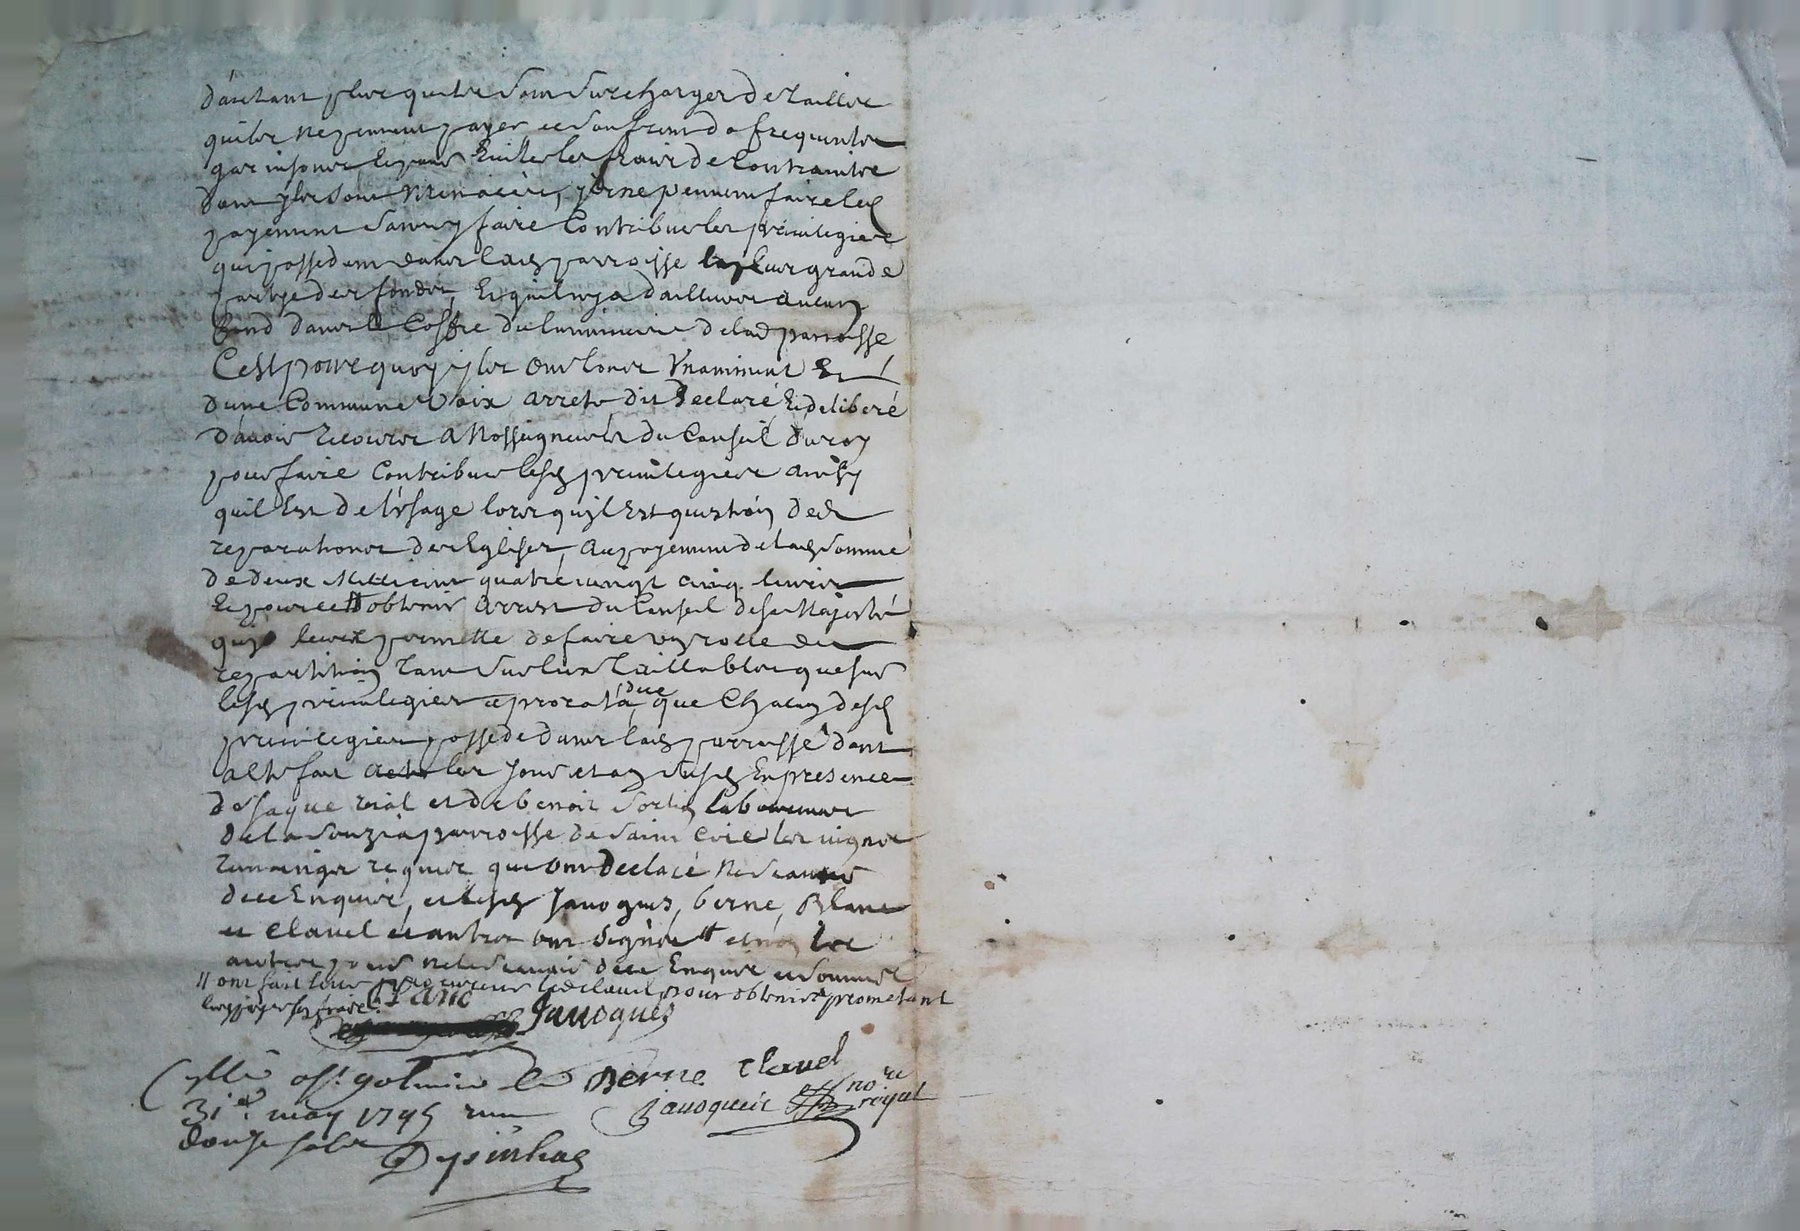 dautant plus quils sont surchargés de tailles
quils ne peuvent payer et souffrent de frequentes
garnisones, et pour Eviter les frais de Contraintes
dont yls sont menacées, yls ne peuvent faire led
payement sans y faire Contribuer les privilegiers
qui possedent dans lad parroisse la plus grande
partye des fonds, Et quil ny a dailleurs aucun
fond dans le Coffre du luminaire de lad parroisse
Cest pourquoy yls ont tous Vnaniment Et
dune Commune Voix arreté dit Declaré Et deliberé
davoir recours a Nosseigneurs du Conseil du roy
pour faire Contribuer lesd privilegiers ainsy
quil Est de lusage lors quil Est question des
reparations des Eglises, au payement de lad somme
de deux mille cent quatre vingt cinq livres
Et pour ce obtenir arrest du Conseil de sa Majesté
quy leurs permette de faire un rolle de
repartition tant sur les Taillables que sur
lesd privilegiers a prorata due que Chacun desd
privilegiers possede dans lad parroisse dont
acte fait les jour et an susd En presence
de jaque rial et de benoit sortin laboureurs
de la parroisse de saint les vignes
requis qui ont declaré ne scavoir
de ce Enquis, et lesd Javogues, berne, Blanc
et Clavel et autres ont signés et non les
autres pour ne le scavoir de ce Enquis et sommés
ont fait leur procureur led clavel pour obtenir prometant
Blanc
Javogues
Berne Clavel
Javogues nore
royal
Cllé a st galmier le
31e may 1745 reçu
douze sols